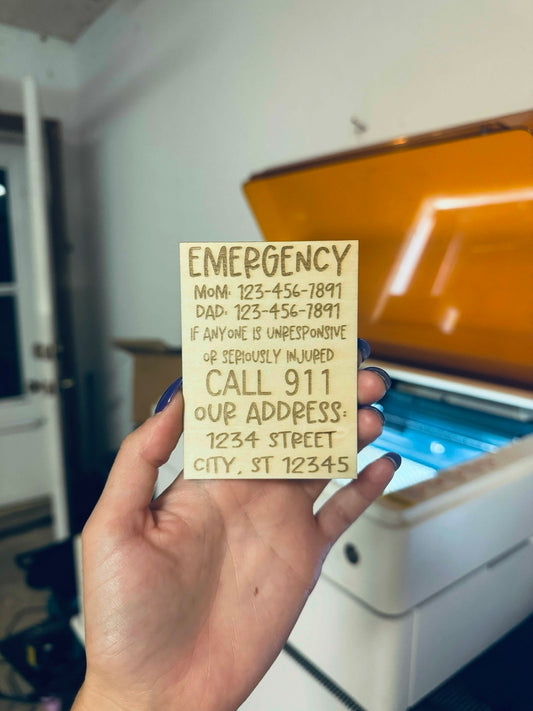 EMERGENCY
MOM: 123-456-7891
DAD: 123-456-7891
IF ANYONE IS UNRESPONSIVE
OR SERIOUSLY INJURED
CALL 911
OUR ADDRESS:
1234 STREET
CITY, ST 12345